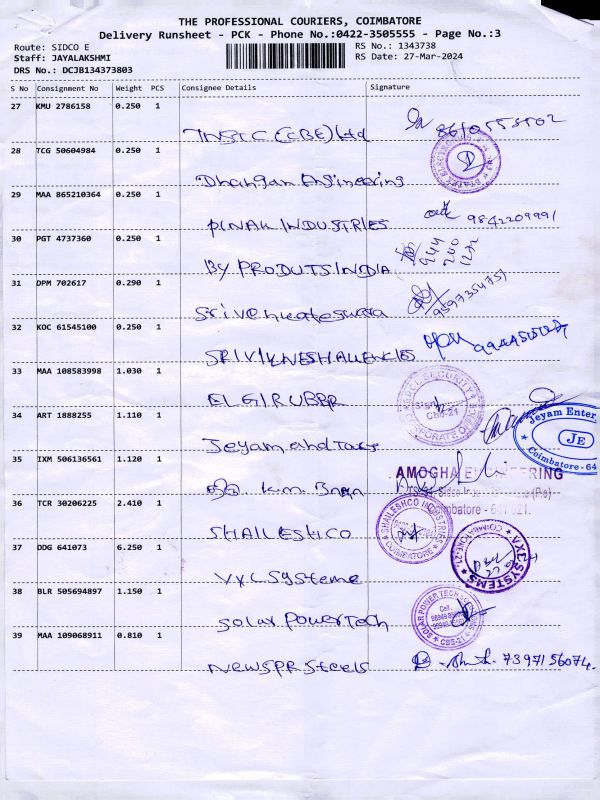 THE PROFESSIONAL COURIERS, COIMBATORE
Delivery Runsheet - PCK - Phone No.:0422-3505555 - Page No.:3
Route: SIDCO E
RS No.: 1343738
Staff: JAYALAKSHMI
RS Date: 27-Mar-2024
DRS No.: DCJB134373803
S No Consignment No Weight PCS Consignee Details Signature
27 KMU 2786158 0.250 1
(CBE) Ltd
28 TCG 50604984 0.250 1
Dhangam Engineering
29 MAA 865210364 0.250 1
PINAK INDUSTRIES 9842209991
30 PGT 4737360 0.250 1
BY PRODUTS INDIA 944 200 1272
31 DPM 702617 0.290 1
Sri Venkateswara 9597354751
32 KOC 61545100 0.250 1
33 MAA 108583998 1.030 1
SECURITY
CBE-21
CORPORATE
34 ART 1888255 1.110 1
Jeyam Enter
JE
Coimbatore - 64
Jeyam and
35 IXM 506136561 1.120 1
AMOGHA
36 TCR 30206225 2.410 1
SHAILESHCO INDUSTRIES
COIMBATORE
SHAILESHCO
37 DDG 641073 6.250 1
VXL SYSTEMS
VXL Systeme
38 BLR 505694897 1.150 1
SOLAR POWER TECH
Cell
CBE-21
Solar Power Tech
39 MAA 109068911 0.810 1
NEWSPR Steels 7397156074